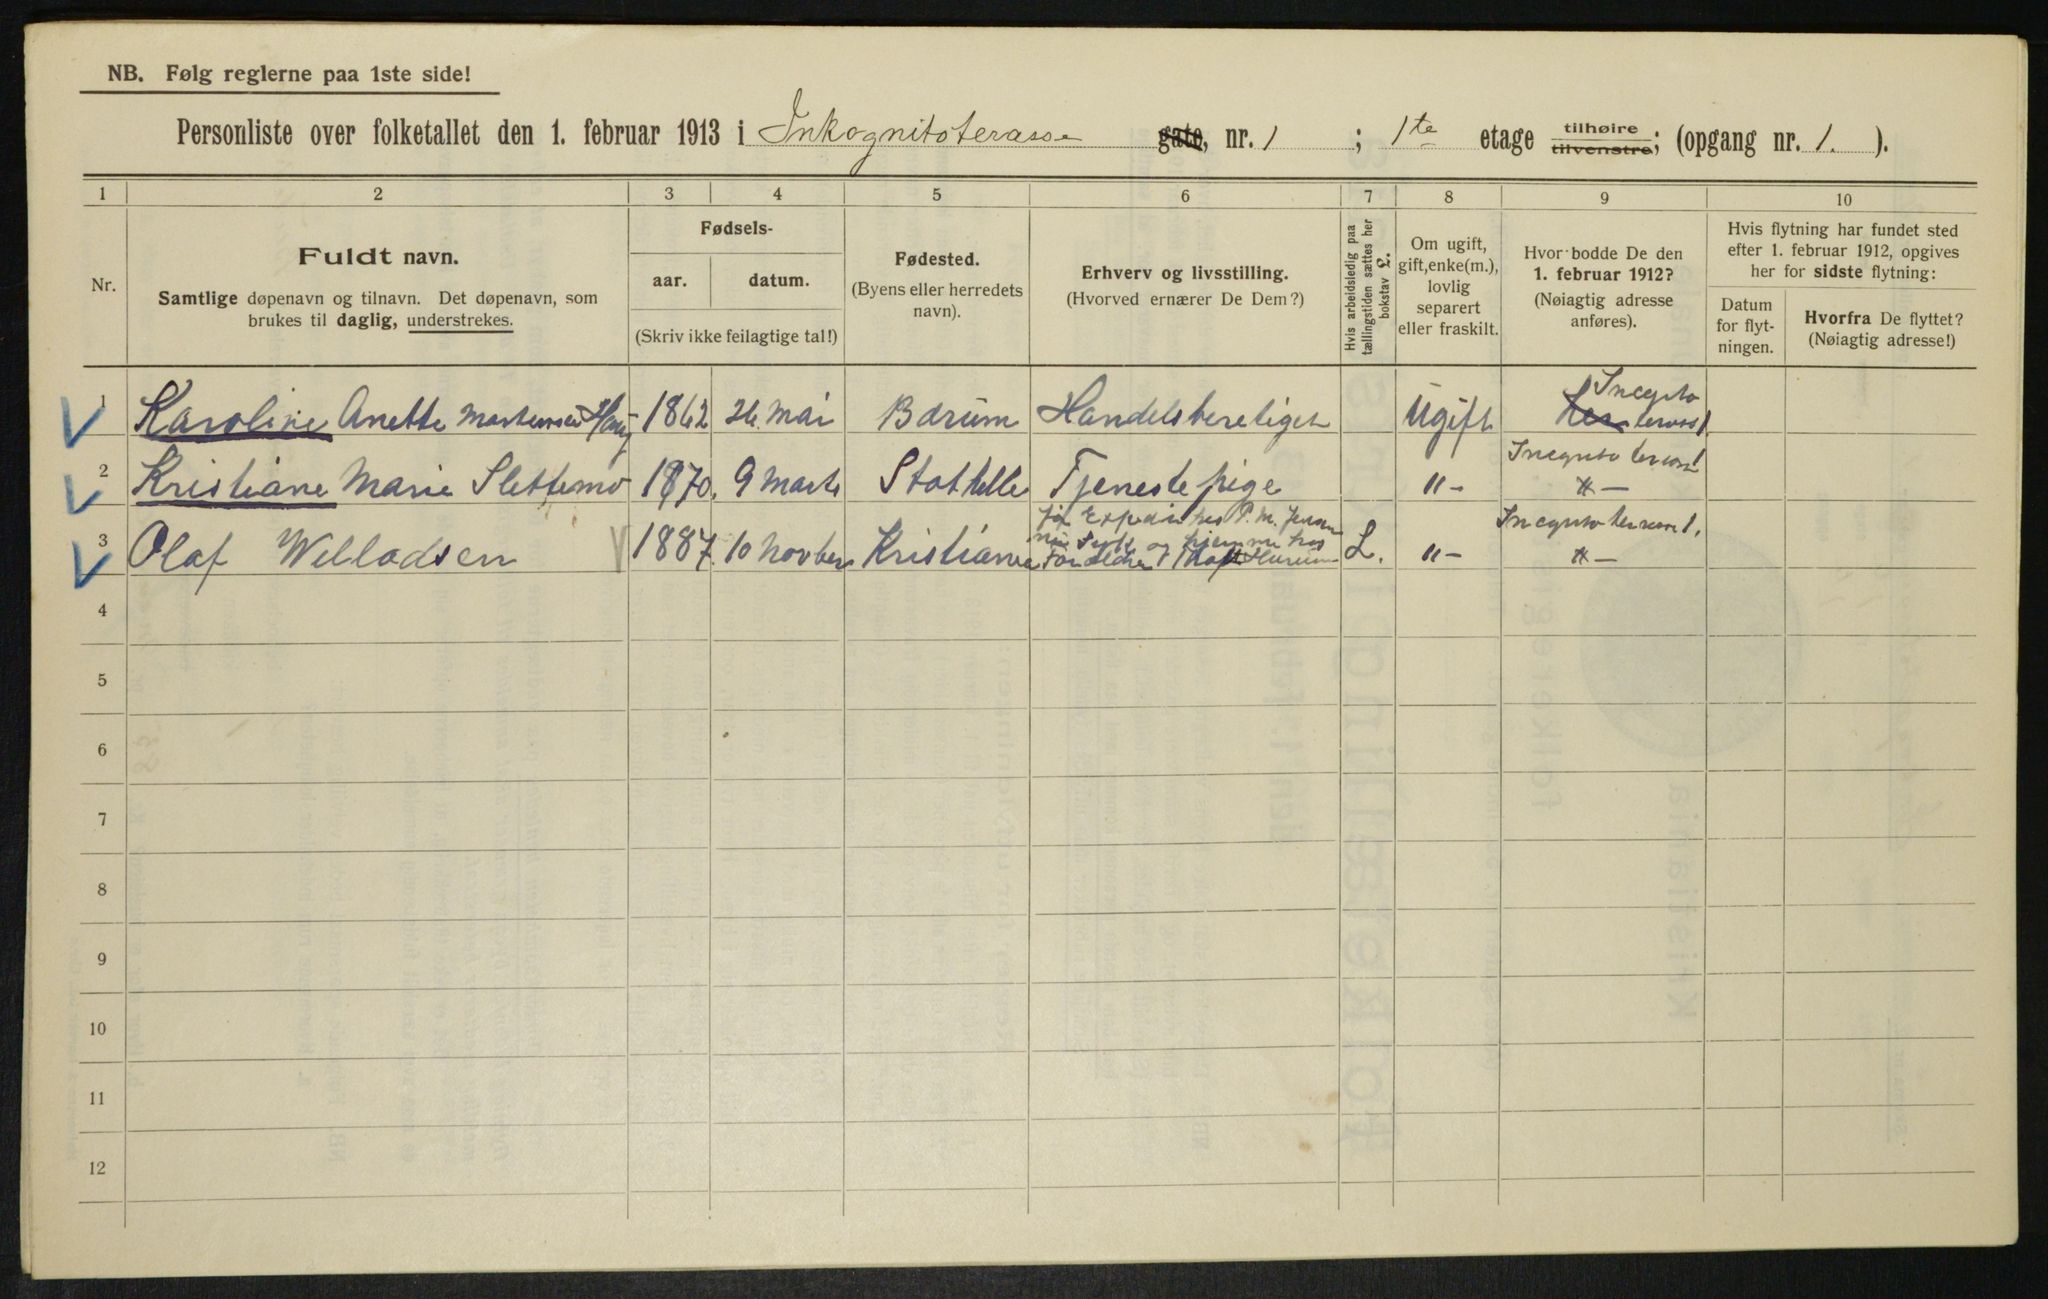 NB. Følg reglerne paa 1ste side!
Personliste over folketallet den 1. februar 1913 i Inkognitoterasse gate, nr. 1 ; 1te etage tilhøire tilvenstre; (opgang nr. 1. ).
1 2 3 4 5 6 7 8 9 10
Nr.
Fuldt navn.
Samtlige døpenavn og tilnavn. Det døpenavn, som
brukes til daglig, understrekes.
Fødsels-
aar. datum.
(Skriv ikke feilagtige tal!)
Fødested.
(Byens eller herredets
navn).
Erhverv og livsstilling.
(Hvorved ernærer De Dem?)
Hvis arbeidsledig paa
tællingstiden sættes her
bokstav L.
Om ugift,
gift, enke(m.),
lovlig
separert
eller fraskilt.
Hvor bodde De den
1. februar 1912?
(Nøiagtig adresse
anføres).
Hvis flytning har fundet sted
efter 1. februar 1912, opgives
her for sidste flytning:
Datum
for flyt-
ningen.
Hvorfra De flyttet?
(Nøiagtig adresse!)
1 Karoline Anette Martensen Haug 1862 26. Mai Bærum Handelsberetiget Ugift Her Incognito terras 1.
2 Kristiane Marie Slettemo 1870. 9 Marts Stathelle Tjenestepige "- Incognito terrasse 1 "-
3 Olaf Willadsen 1887. 10 Novbr Kristiania P. M. Jensen og hjemme hos Forældre L. "- Incognito terrasse 1. "-
4
5
6
7
8
9
10
11
12